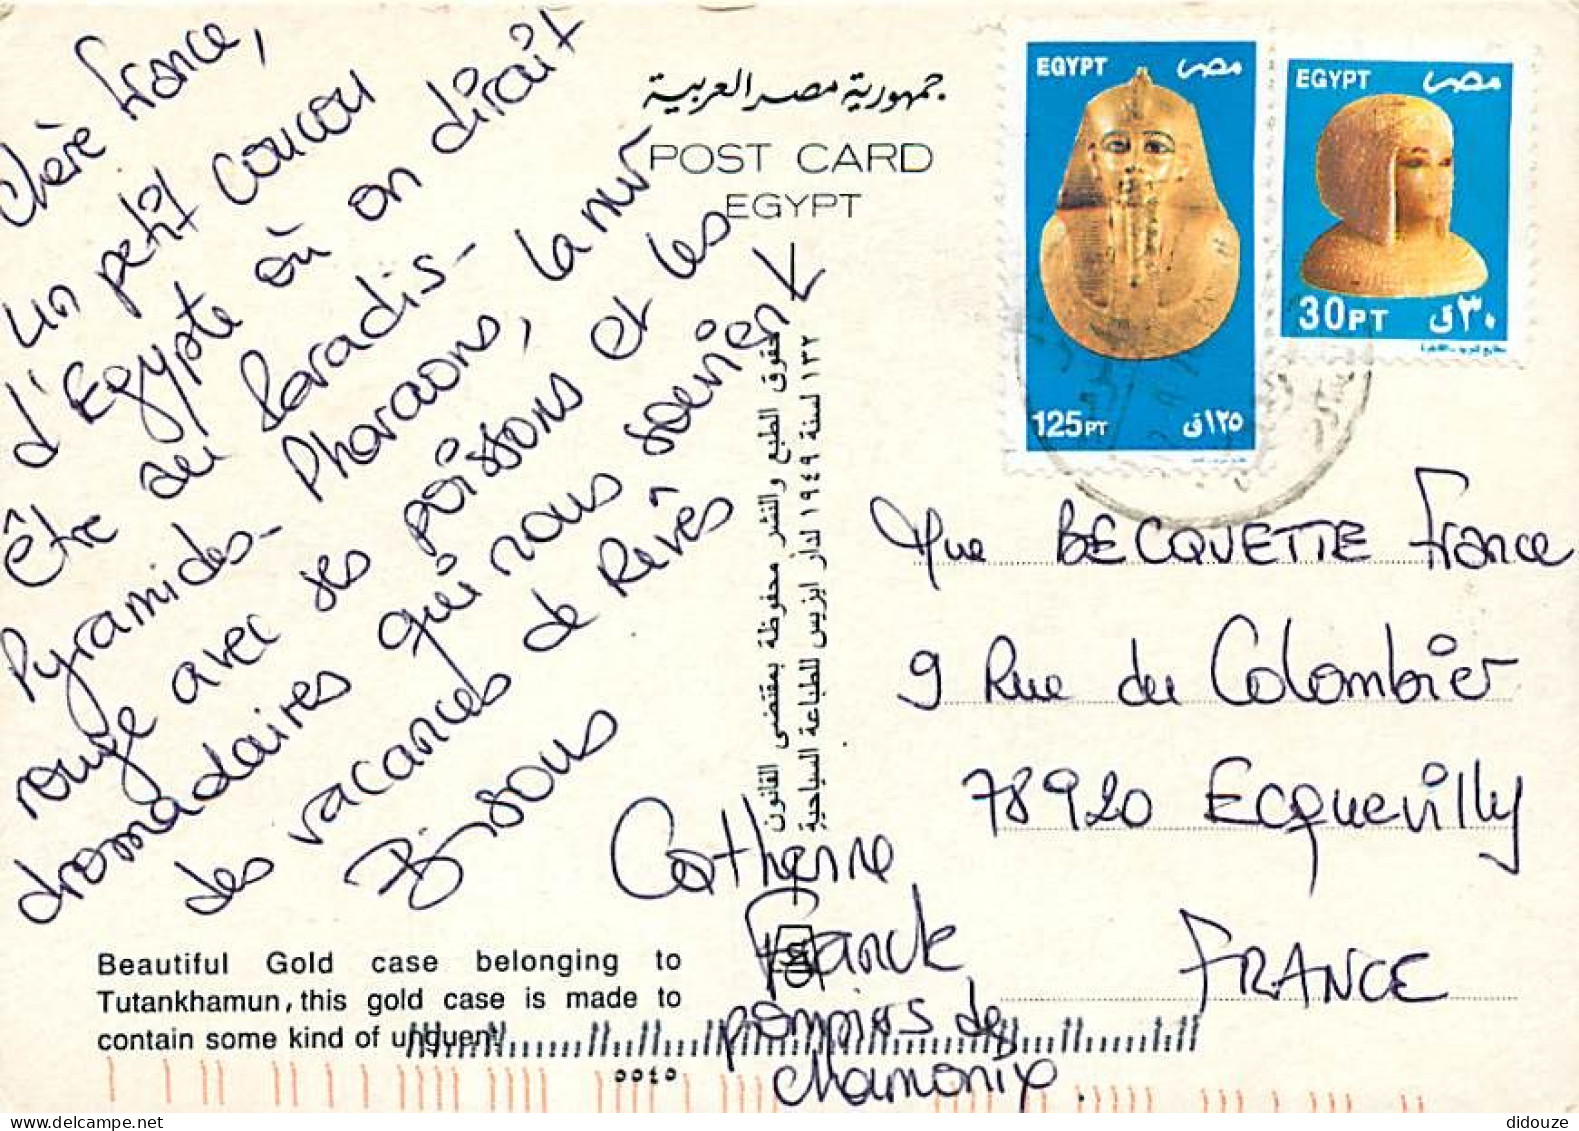 Chère France,
Un petit coucou
d'Egypte où on dirait
être au Paradis-
Pyramides- Pharaons, la mer
rouge avec ses poissons et les
dromadaires qui nous souvien
des vacances de Rêves
Bisous
Catherine
Franck
pompiers de
Chamonix.
جمهورية مصر العربية
POST CARD
EGYPT
حقوق الطبع والنشر محفوظة بمقتضى القانون
١٣٢ لسنة ١٩٤٩ لدار ايزيس للطباعة السياحية
EGYPT مصر
125PT ١٢٥ق
EGYPT مصر
30PT ٣٠ق
BECQUETTE France
9 Rue du Colombier
78920 Ecquevilly
FRANCE
Beautiful Gold case belonging to
Tutankhamun, this gold case is made to
contain some kind of unguent
٥٥٤٥
didouze